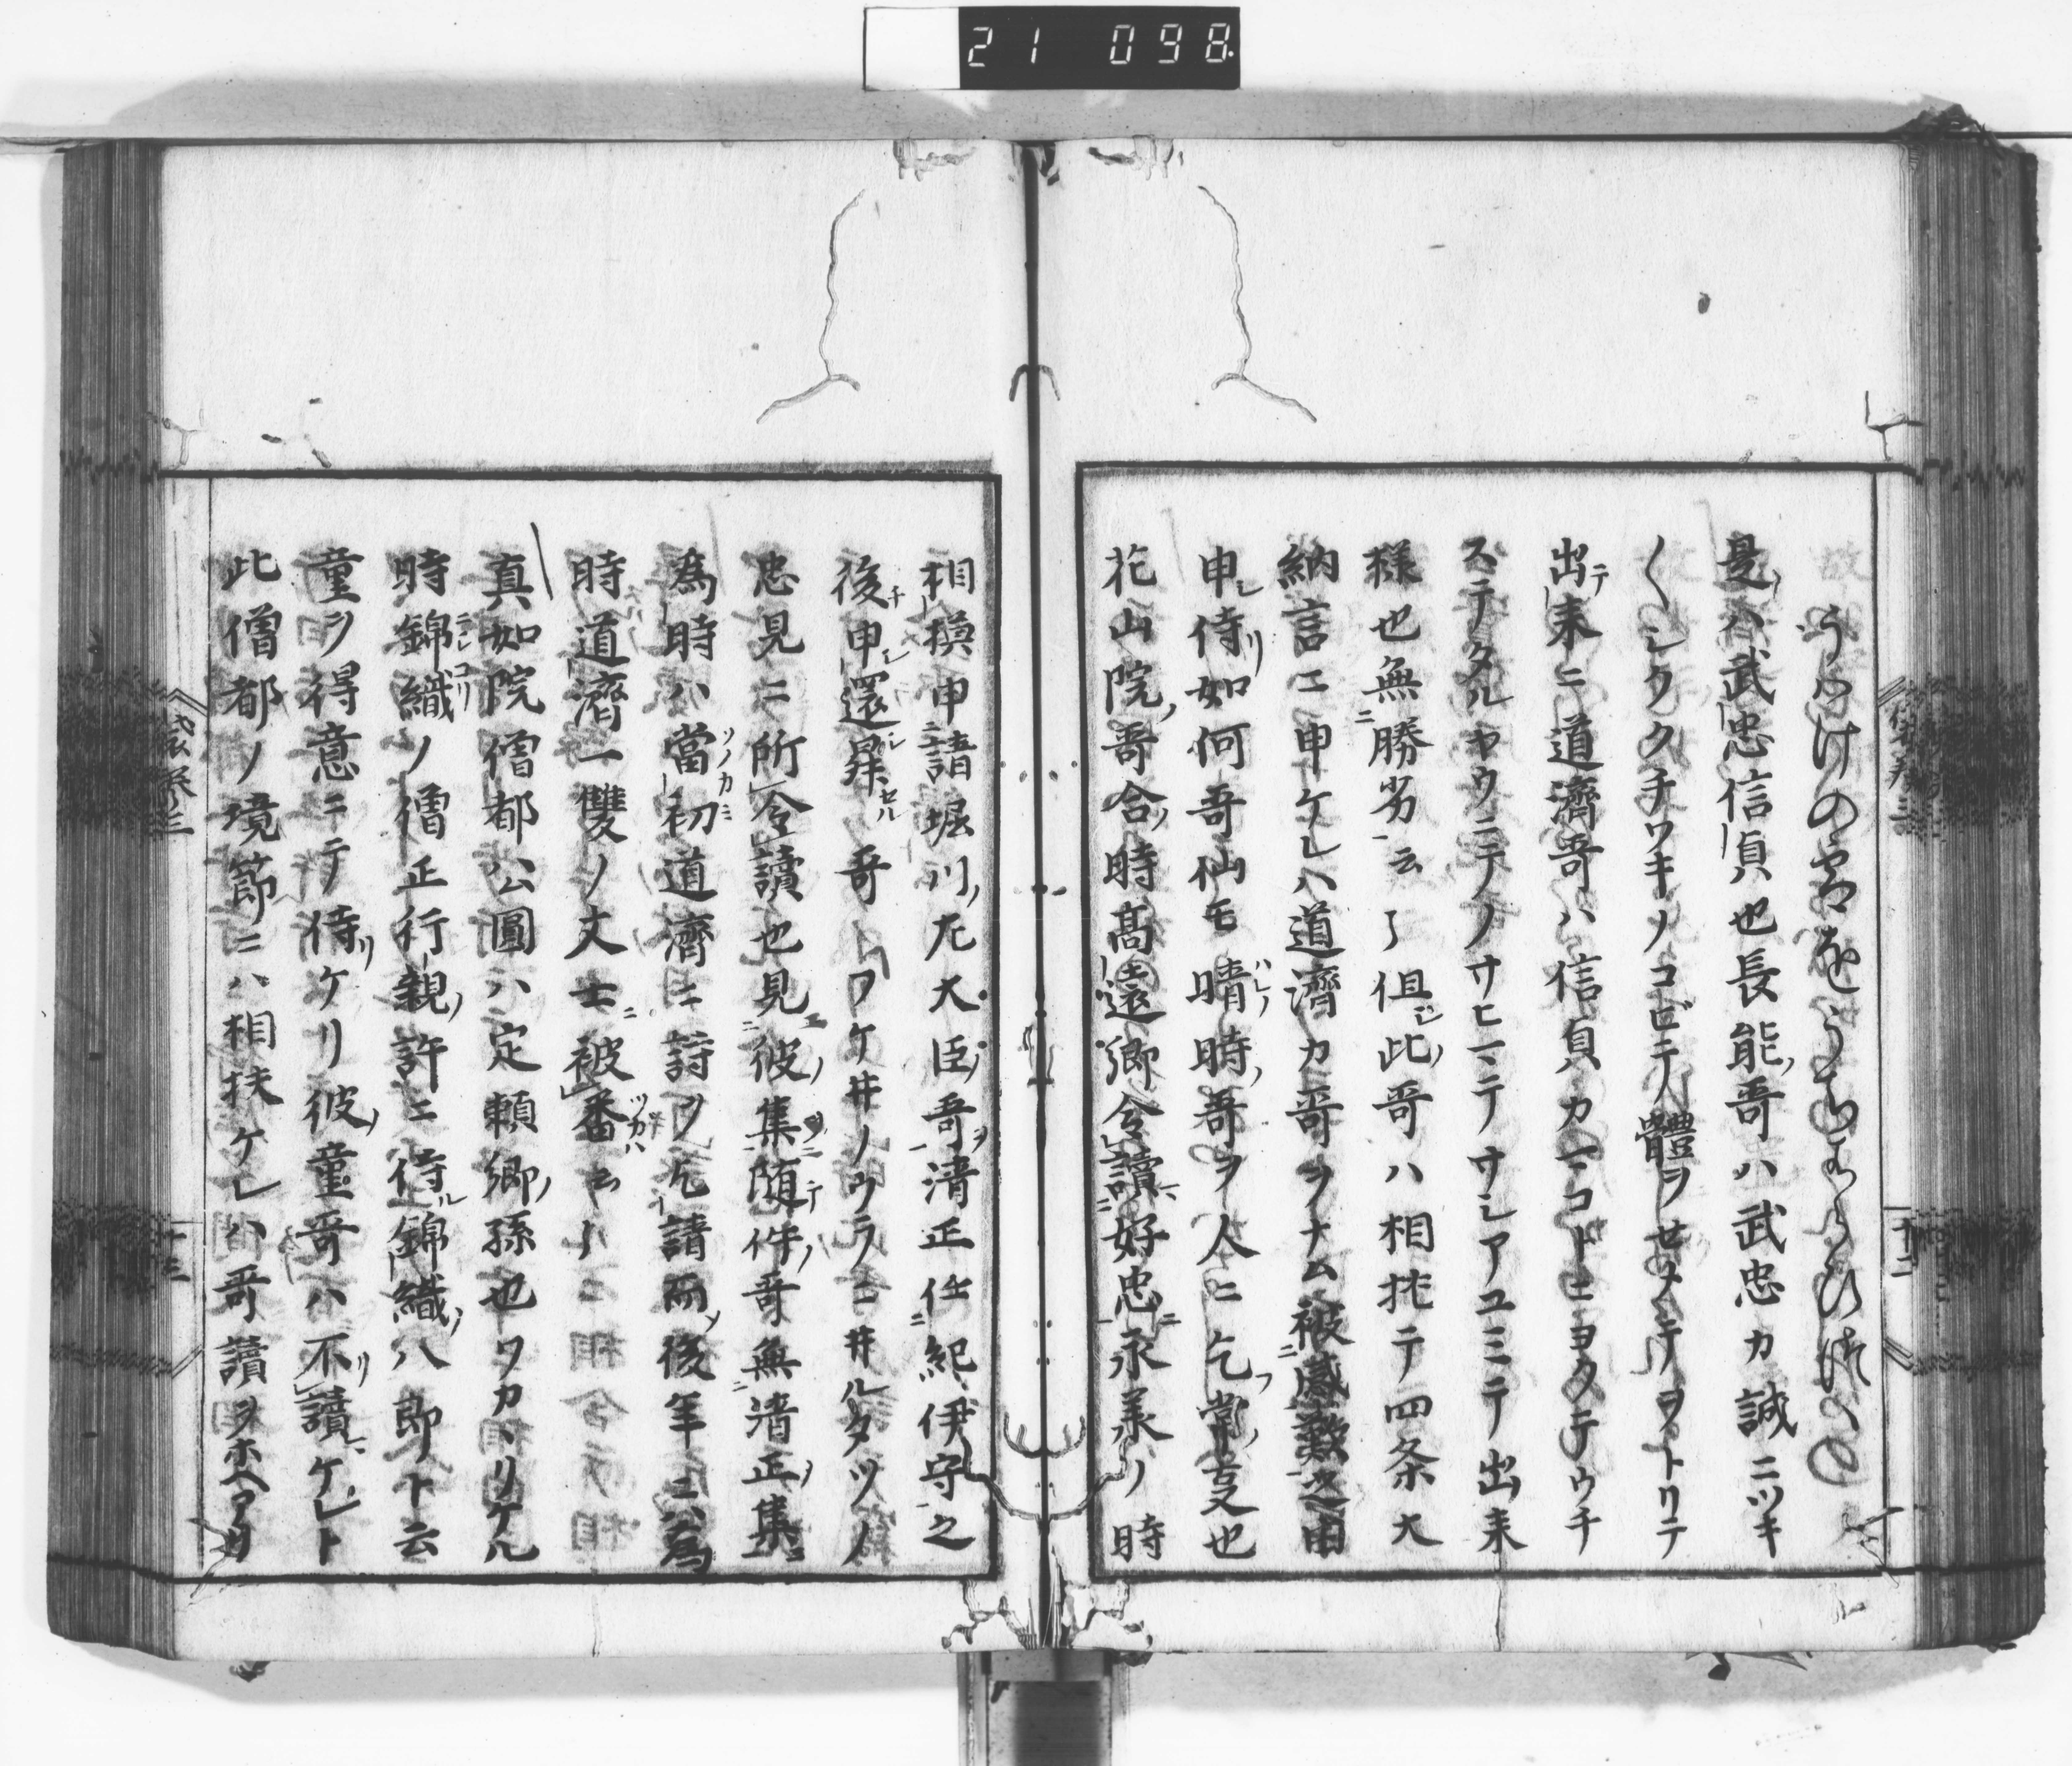 21 098
うらけの宮をうちわらひつゝ
是ハ武忠信貞也長能哥ハ武忠カ誠ニツキ
〱シククチワキノコビテ體ヲセメテヲトリテ
出テ来ニ道濟哥ハ信貞カマコトニヨクテウチ
ステタルヤウニテノサヒマテサシアユミテ出来
様也無勝劣云了但此哥ハ相抂テ四条大
納言ニ申ケレハ道濟カ哥ヲナム被感歎之由
申シ侍リ如何哥仙モ晴ハレノ時ノ哥ヲ人ニ乞フ常ノ支也
花山院ノ哥合ノ時髙遠卿令讀好忠永承ノ時
相摸申請堀川ノ左大臣ノ哥ヲ清正任紀伊守之
後チ申シ還昇セルノ哥ーワケ井ノウラニ井ルタツノ
忠見ニ所令讀也見彼集随テ件ノ哥無清正ノ集
為時ハ當初ソノカミ道濟ニ詩ヲ乞請而ノ後年ニハ為
時道濟一雙ノ文士ニ被番ツカハ云ー
真如院僧都公圓ハ定頼卿ノ孫也ワカヽリケル
時錦織ニシコリノ僧正行親ノ許ニ侍ル錦織ノ八郎ト云
童ヲ得意ニテ侍リケリ彼ノ童哥ハ不讀ケレト
此僧都ノ境節ニハ相扶ケレハ哥讀ヲホヘアリ
袋巻三
十三
十二